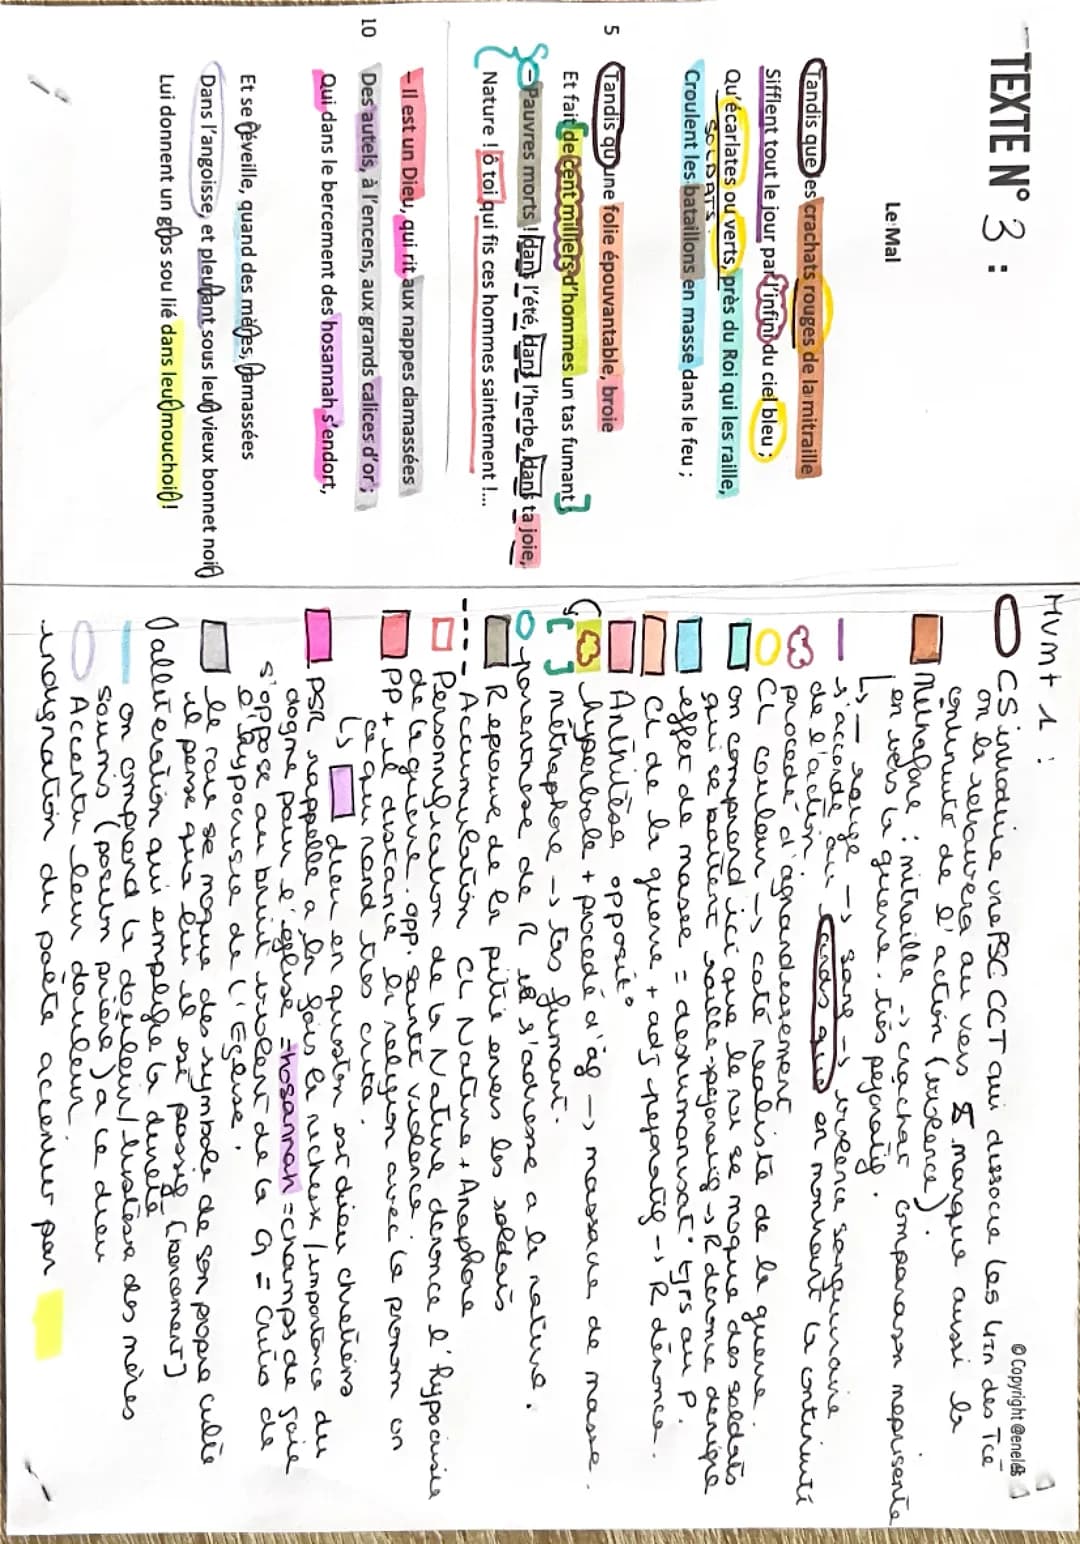 TEXTE N° 3 :
Le Mal
Tandis que les crachats rouges de la mitraille
Sifflent tout le jour par l'infini du ciel bleu ;
Qu'écarlates ou verts, près du Roi qui les raille,
SOLDATS
Croulent les bataillons en masse dans le feu ;
5
Tandis qu'une folie épouvantable, broie
Et fait de cent milliers d'hommes un tas fumant ;
– Pauvres morts ! dans l'été, dans l'herbe, dans ta joie,
Nature ! ô toi qui fis ces hommes saintement !...
– Il est un Dieu, qui rit aux nappes damassées
10
Des autels, à l'encens, aux grands calices d'or ;
Qui dans le bercement des hosannah s'endort,
Et se réveille, quand des mères, ramassées
Dans l'angoisse, et pleurant sous leur vieux bonnet noir
Lui donnent un gros sou lié dans leur mouchoir !
© Copyright @enel
Mvmt 1 :
CS introduire une PSC CCT qui dissocie les
on la retrouvera au vers 5 marque aussi la
continuité de l'action (violence).
Métaphore : mitraille -> crachat comparaison méprisante
en vers la guerre. très péjoratif.
↳ — rouge -> sang -> violence sanguinaire
s'accorde au tandis que en montrant la continuité
de l'action.
procédé d'agrandissement
CL couleur -> coté réaliste de la guerre.
on comprend ici que le roi se moque des soldats
qui se battent raille = péjoratif -> R dénonce
effet de masse = déshumanisat° tjrs au P.
CL de la guerre + adj péjoratif -> R dénonce.
Antithèse opposit°
hyperbole + procédé d'ag -> massacre de masse.
métaphore -> tas fumant.
parenthèse de R il s'adresse a la nature.
Reprouve de la pitié envers les soldats
Accumulation CL Nature + Anaphore
Personnification de la Nature dénonce l'hypocrisie
de la guerre. opp. sainté violence.
PP + il distance la religion avec le pronom on
ce qui rend très cuta.
↳ dieu en question est dieu chrétiens
PSR rappelle a la fois la richesse / importance du
dogme pour l'église = hosannah = champs de joie
s'oppose au bruit violent de la G = Cuita de
l'hypocrisie de l'Eglise.
le roi se moque des symbole de son propre culte
il pense qua lui il est passif (bercement)
allitération qui emplifie la dureté
on comprend la douleur / tristesse des mères
soumis (position prière) a ce dieu
Accentu leur douleur.
indignation du poète accentuer par